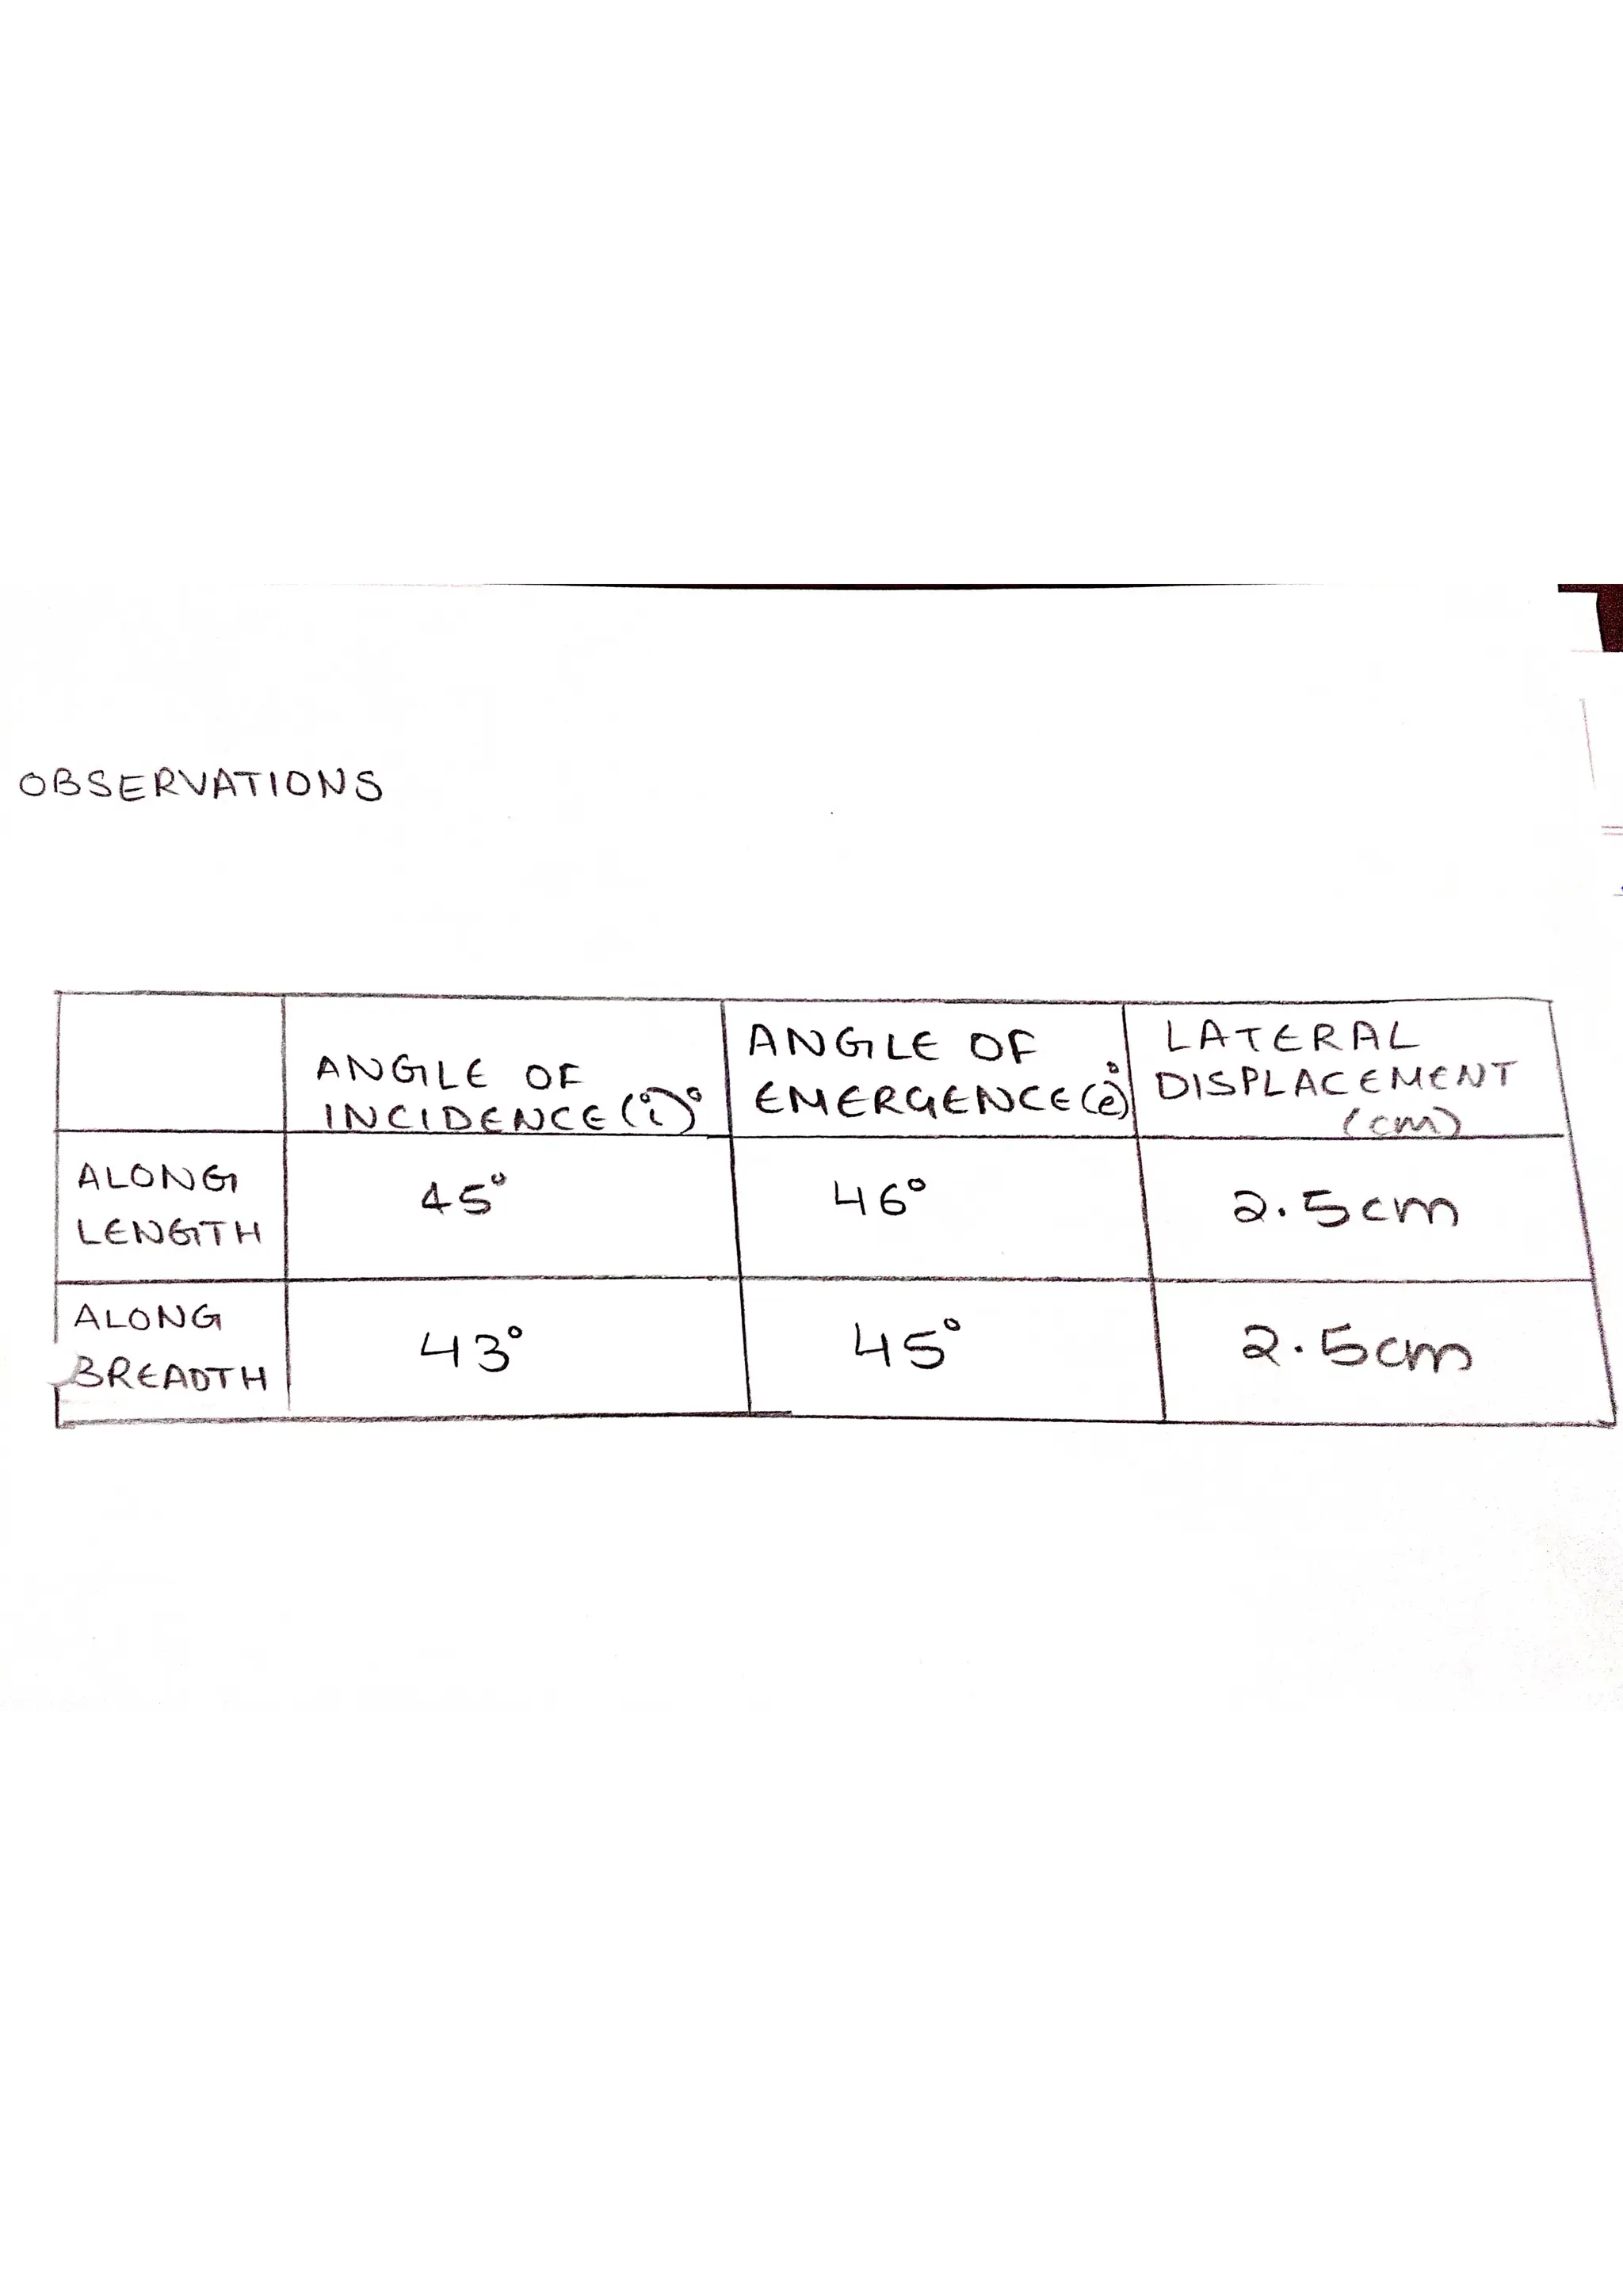 OBSERVATIONS
ANGLE OF
INCIDENCE (i)°
ANGLE OF
EMERGENCE (e)°
LATERAL
DISPLACEMENT
(cm)
ALONG
LENGTH
45°
46°
2.5cm
ALONG
BREADTH
43°
45°
2.5cm